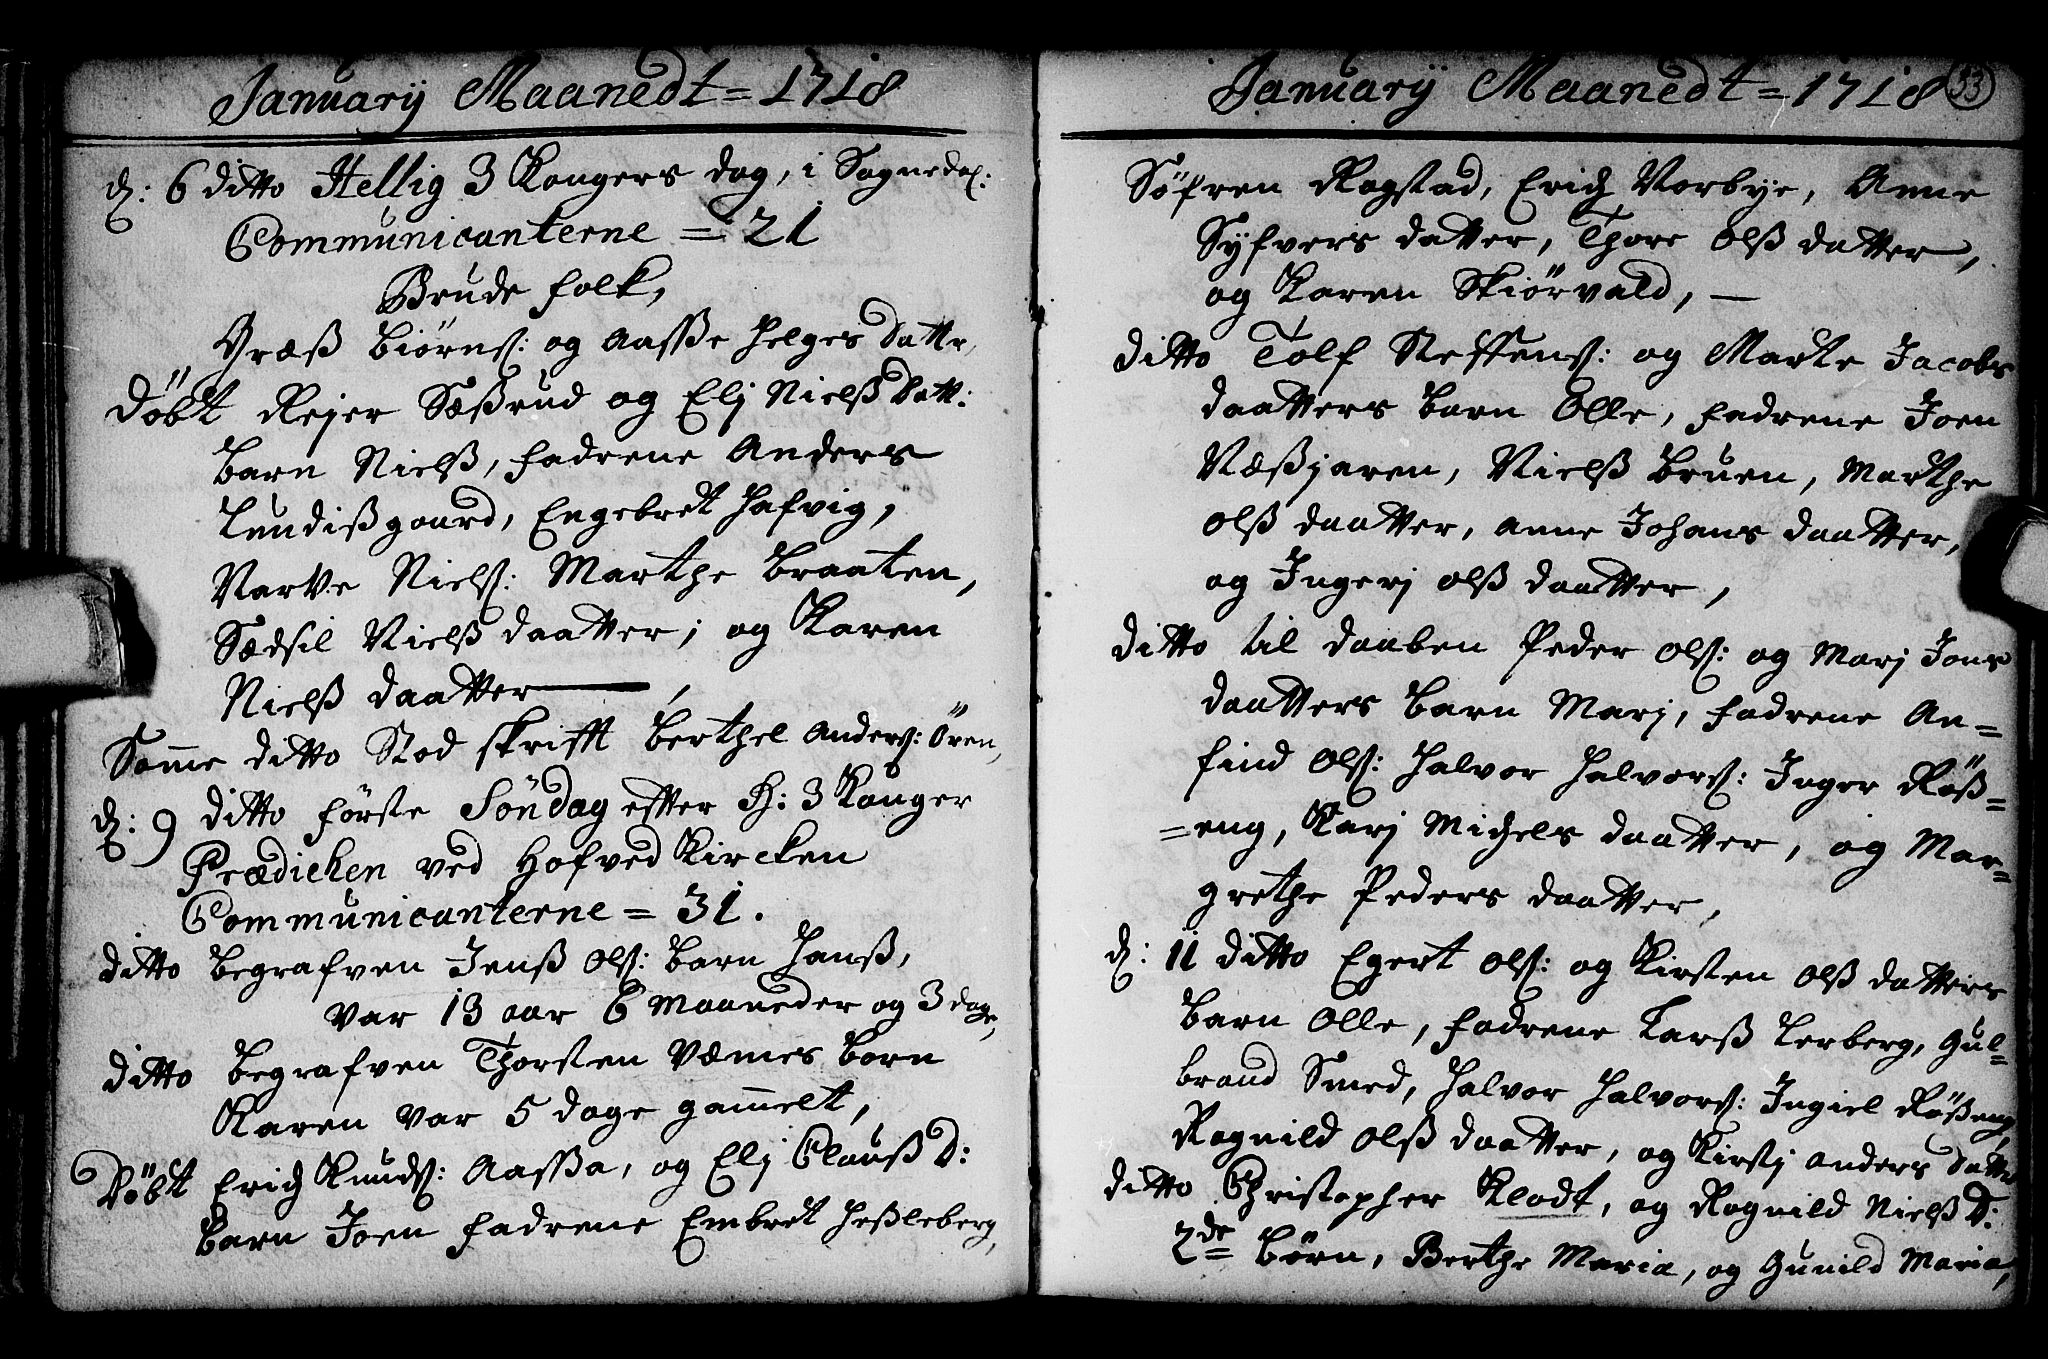 Januarÿ Maanedt = 1718
d: 6 ditto Hellig 3 Kongers dag, i Sognedal:
Communicanterne = 21
Brude folk,
Græß Biörns: og Aasße Helges Dattr,
Döbt Rejer Sæßrud og Elj Nielß Datt:
barn Nielß, fadrene Anders
Lundißgaard, Engebret Hafvig,
Narve Niels: Marthe Braaten,
Sædsil Nielß daatter; og Karen
Nielß daatter
Samme ditto Stod skrifft Berthel Anders: Ören,
d: 9 ditto förste Söndag effter H: 3 Konger
Prædicken ved Hofved Kircken
Communicanterne = 31.
ditto begrafven Jenß Ols: barn Hanß,
var 13 aar 6 Maaneder og 3 dage,
ditto begrafven Thorsten Væmes barn
Karen var 5 dage gammelt,
Döbt Erich Knuds: Aasßa, og Elj Clauß D:
barn Joen fadrene Embret Heßleberg,
Januarÿ Maanedt = 1718 33
Söfren Rogstad, Erich Vorbye, Anne
Syfvers datter, Thore Olß datter,
og Karen Skiörvald,
ditto Tolf Steffens: og Marte Jacobs
daatters barn Olle, fadrene Joen
Næßjaren, Nielß Bruen, Marthe
Olß daatter, Anne Johans daatter,
og Ingerj Olß daatter,
ditto til daaben Peder Ols: og Marj Jons
daatters barn Marj, fadrene An=
find Ols: Halvor Halvors: Inger Röß=
=eng, Karj Michels daatter, og Mar=
grethe Peders daatter,
d: 11 ditto Egert Ols: og Kirsten Olß datters
barn Olle, fadrene Larß Lerberg, Gul=
brand Smed, Halvor Halvors: Ingiel Rößeng,
Rognild Olß daatter, og Kirstj Anders datter
ditto Christopher Klodt, og Rognild Nielß D:
2de börn, Berthe Maria, og Gunild Maria,